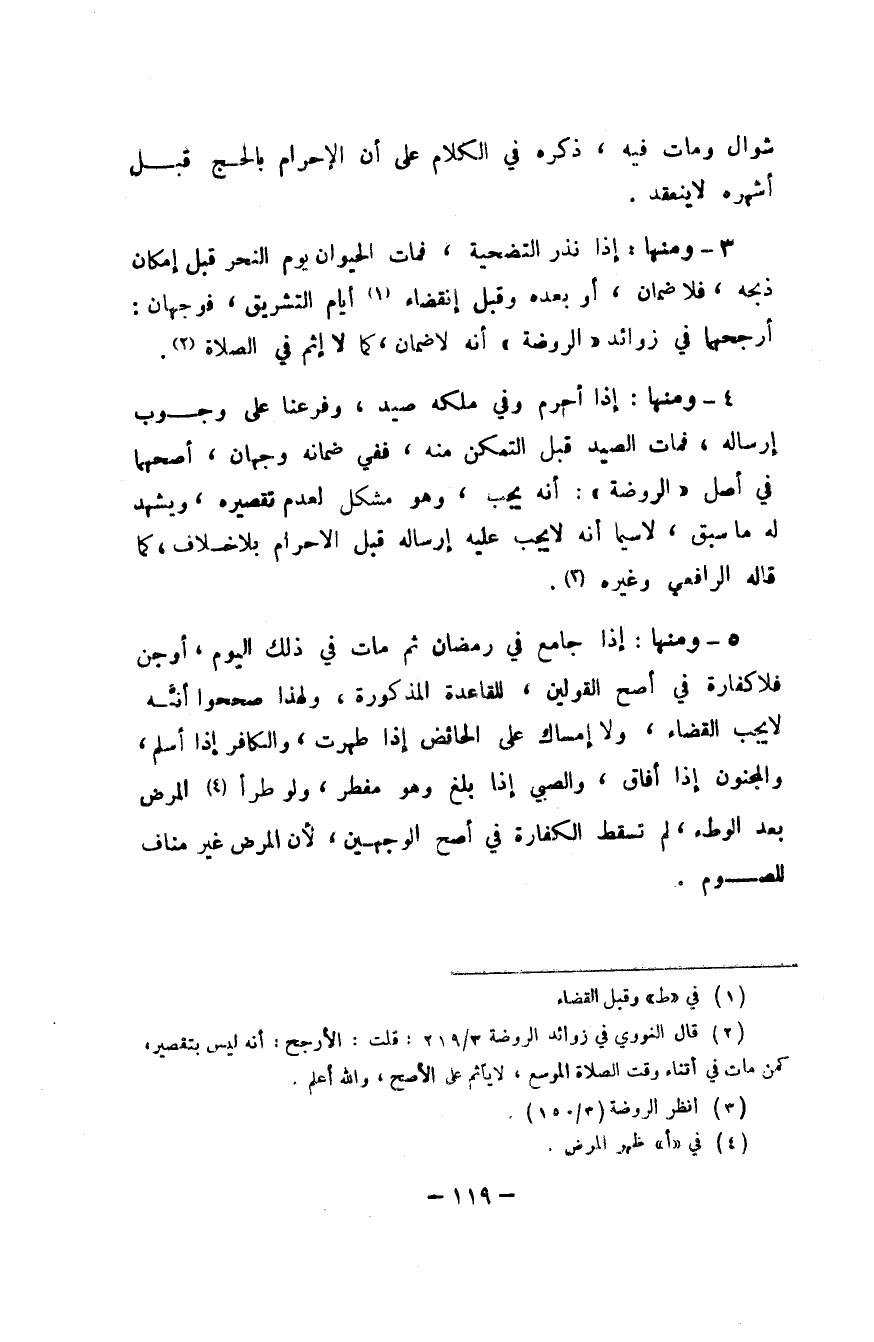 شوال ومات فيه ، ذكره في الكلام على أن الإحرام بالحـج قبـــل
أشهره لاينعقد .
٣ ـ ومنها : إذا نذر التضحية ، فمات الحيوان يوم النحر قبل إمكان
ذبحه ، فلا ضمان ، أو بعده وقبل إنقضاء (١) أيام التشريق ، فوجهان :
أرجحها في زوائد « الروضة » أنه لاضمان ، كما لا إثم في الصلاة (٢) .
٤ ـ ومنها : إذا أحرم وفي ملكه صيد ، وفرعنا على وجـــوب
إرساله ، فمات الصيد قبل التمكن منه ، ففي ضمانه وجهان ، أصحها
في أصل « الروضة » : أنه يجب ، وهو مشكل لعدم تقصيره ، ويشهد
له ما سبق ، لاسيما أنه لايجب عليه إرساله قبل الاحرام بلاخـلاف ، كما
قاله الرافعي وغيره (٣) .
٥ ـ ومنها : إذا جامع في رمضان ثم مات في ذلك اليوم ، أوجن
فلاكفارة في أصح القولين ، للقاعدة المذكورة ، ولهذا صححوا أنَّـه
لايجب القضاء ، ولا إمساك على الحائض إذا طهرت ، والكافر إذا أسلم ،
والمجنون إذا أفاق ، والصبي إذا بلغ وهو مفطر ، ولو طرأ (٤) المرض
بعد الوطء ، لم تسقط الكفارة في أصح الوجهـين ، لأن المرض غير مناف
للصـــوم .
(١) في «ط» وقبل القضاء
(٢) قال النووري في زوائد الروضة ٢١٩/٣ : قلت : الأرجح : أنه ليس بتقصير ،
كمن مات في أثناء وقت الصلاة الموسع ، لايأثم على الأصح ، والله أعلم .
(٣) انظر الروضة (١٥٠/٣) .
(٤) في «أ» ظهر المرض .
– ١١٩ –